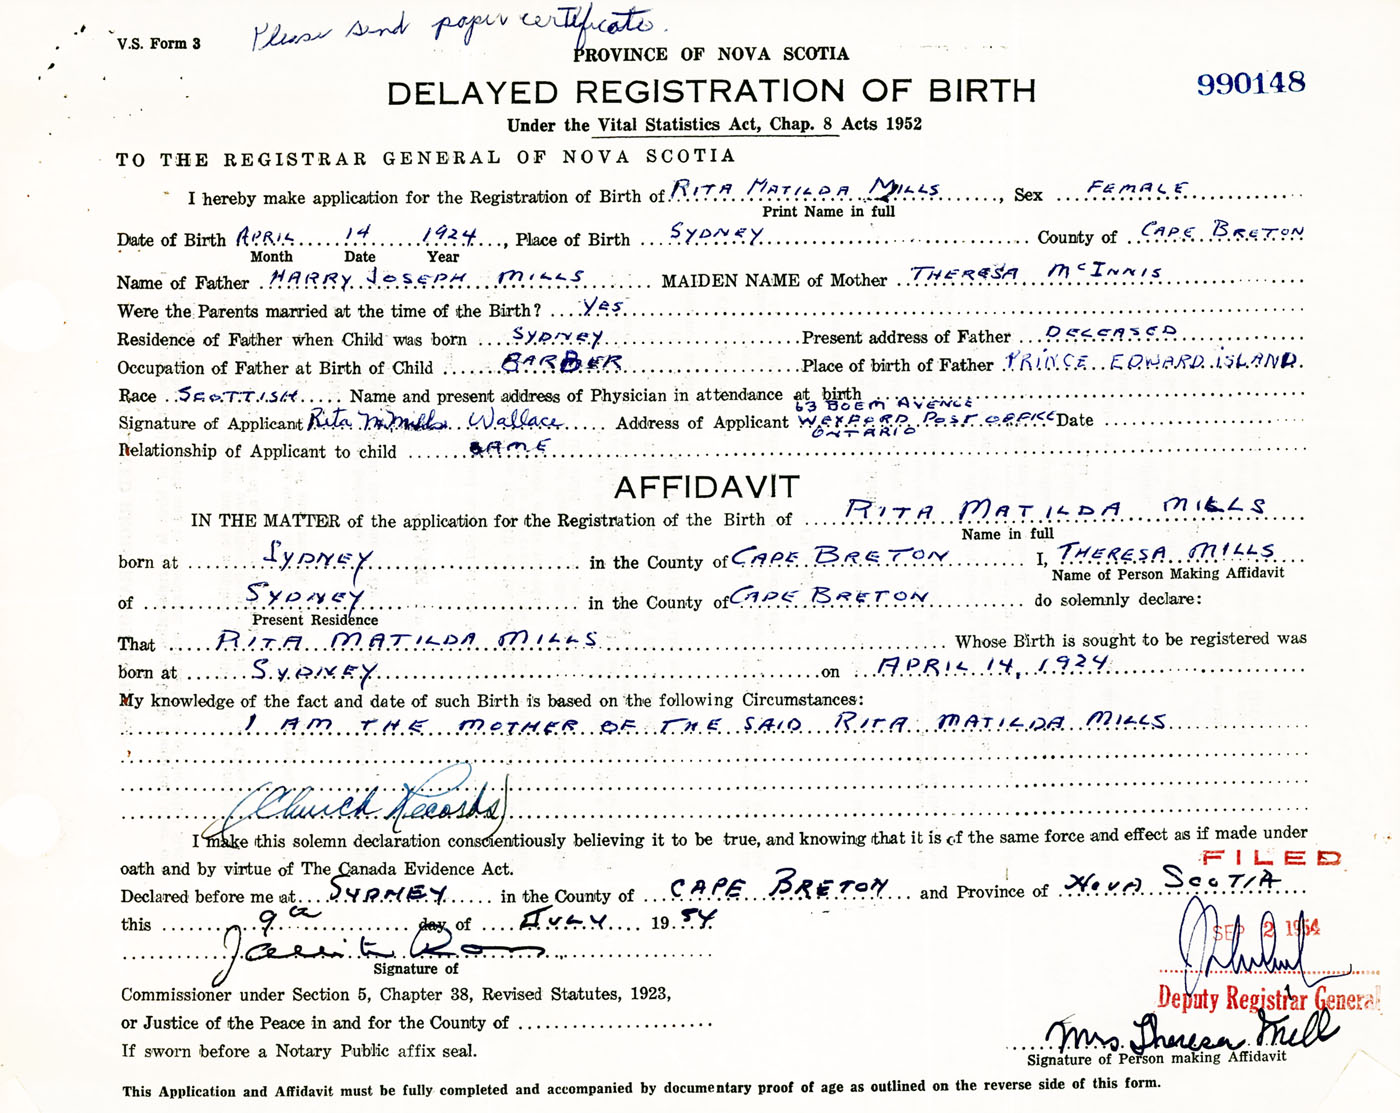 Please send paper certificate.
V.S. Form 3
PROVINCE OF NOVA SCOTIA
DELAYED REGISTRATION OF BIRTH
990148
Under the Vital Statistics Act, Chap. 8 Acts 1952
TO THE REGISTRAR GENERAL OF NOVA SCOTIA
I hereby make application for the Registration of Birth of RITA MATILDA MILLS, Sex FEMALE
Print Name in full
Date of Birth APRIL 14 1924, Place of Birth SYDNEY County of CAPE BRETON
Month Date Year
Name of Father HARRY JOSEPH MILLS MAIDEN NAME of Mother THERESA McINNIS
Were the Parents married at the time of the Birth? Yes
Residence of Father when Child was born SYDNEY Present address of Father DECEASED
Occupation of Father at Birth of Child BARBER Place of birth of Father PRINCE EDWARD ISLAND
Race SCOTTISH Name and present address of Physician in attendance at birth
63 BOEM AVENUE
Signature of Applicant Rita M. Mills Wallace Address of Applicant WEXFORD POST OFFICE Date
ONTARIO
Relationship of Applicant to child SAME
AFFIDAVIT
IN THE MATTER of the application for the Registration of the Birth of RITA MATILDA MILLS
Name in full
born at SYDNEY in the County of CAPE BRETON I, THERESA MILLS
Name of Person Making Affidavit
of SYDNEY in the County of CAPE BRETON do solemnly declare:
Present Residence
That RITA MATILDA MILLS Whose Birth is sought to be registered was
born at SYDNEY on APRIL 14, 1924
My knowledge of the fact and date of such Birth is based on the following Circumstances:
I AM THE MOTHER OF THE SAID RITA MATILDA MILLS
(Church Records)
I make this solemn declaration conscientiously believing it to be true, and knowing that it is of the same force and effect as if made under
oath and by virtue of The Canada Evidence Act.
FILED
Declared before me at SYDNEY in the County of CAPE BRETON and Province of NOVA SCOTIA
this 9th day of JULY 1954
SEP 2 1954
Signature of
Commissioner under Section 5, Chapter 38, Revised Statutes, 1923,
Deputy Registrar General
or Justice of the Peace in and for the County of
Mrs Theresa Mill
If sworn before a Notary Public affix seal.
Signature of Person making Affidavit
This Application and Affidavit must be fully completed and accompanied by documentary proof of age as outlined on the reverse side of this form.